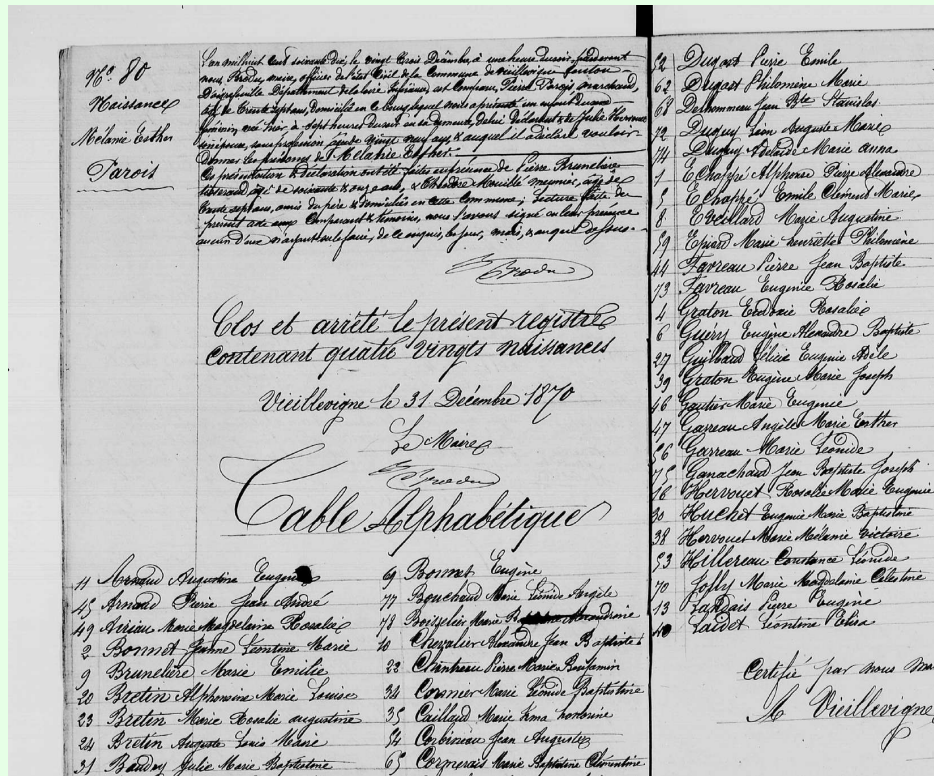 No. 80
Naissance
Mélanie Esther
Parois
L'an mil huit cent soixante dix, le vingt trois Décembre, à une heure du soir, pardevant
nous, maire, officier de l'état Civil de la Commune de Vieillevigne, canton
Département de la Loire Inférieure, est comparu, Pierre Parois, marchand,
âgé de trente sept ans, domicilié en ce bourg, lequel nous a présenté un enfant du sexe
féminin, né hier, à sept heures du soir en sa demeure, de lui Déclarant & de Julie
son épouse, sans profession, âgée de vingt neuf ans & auquel il a déclaré vouloir
donner les prénoms de Mélanie Esther.
Ces présentation & déclaration ont été faites en présence de Pierre Brunelière
tisserand, âgé de soixante & onze ans, & Théodore meunier, âgé de
trente sept ans, amis du père & domiciliés en cette Commune; Lecture faite du
présent acte aux Comparant & témoins, nous l'avons signé en leur présence
aucun d'eux n'ayant su le faire, de ce enquis, les jour, mois, & an que dessus.
Clos et arrêté le présent registre
contenant quatre vingts naissances
Vieillevigne le 31 Décembre 1870
Le Maire
Table Alphabétique
11 Arnaud Augustine Eugénie
45 Arnaud Pierre Jean André
49 Marie Magdeleine Rosalie
2 Bonnet Jeanne Léontine Marie
9 Brunelière Marie Emilie
20 Bretin Alphonsine Marie Louise
23 Bretin Marie Rosalie augustine
24 Bretin Auguste Louis Marie
31 Baudry Julie Marie Baptistine
69 Bonnet Eugène
77 Bouchaud Marie Léonide Angèle
78 Boisselier Marie Alexandrine
10 Chevalier Alexandre Jean Baptiste
22 Pierre Marie Benjamin
34 Cormier Marie Léonide Baptistine
35 Caillaud Marie honorine
54 Corbineau Jean Auguste
65 Cormerais Marie Baptistine Clémentine
52 Dugast Pierre Emile
62 Dugast Philomène Marie
68 Dehommeau Jean Bte Stanislas
72 Duguy Léon Auguste Marie
74 Duguy Adélaïde Marie anna
1 Echappé Alphonse Pierre Alexandre
5 Echappé Emile Clément Marie
8 Eveillard Marie Augustine
59 Epiard Marie henriette Philomène
44 Favreau Pierre Jean Baptiste
73 Favreau Eugénie Rosalie
4 Graton Eudoxie Rosalie
6 Guéry Eugène Alexandre Baptiste
27 Guilbaud Félicie Eugénie Adèle
39 Graton Eugène Marie Joseph
46 Gautier Marie Eugénie
47 Garreau Angèle Marie Esther
56 Garreau Marie Léonide
Ganachaud Jean Baptiste Joseph
16 Hervouet Rosalie Marie Eugénie
30 Huchet Eugénie Marie Baptistine
38 Hervouet Marie Mélanie Victoire
53 Hillereau Constance Léonide
70 Joffly Marie Magdeleine Célestine
13 Landais Pierre Eugène
Laidet Léontine Elisa
Certifié par nous
A Vieillevigne